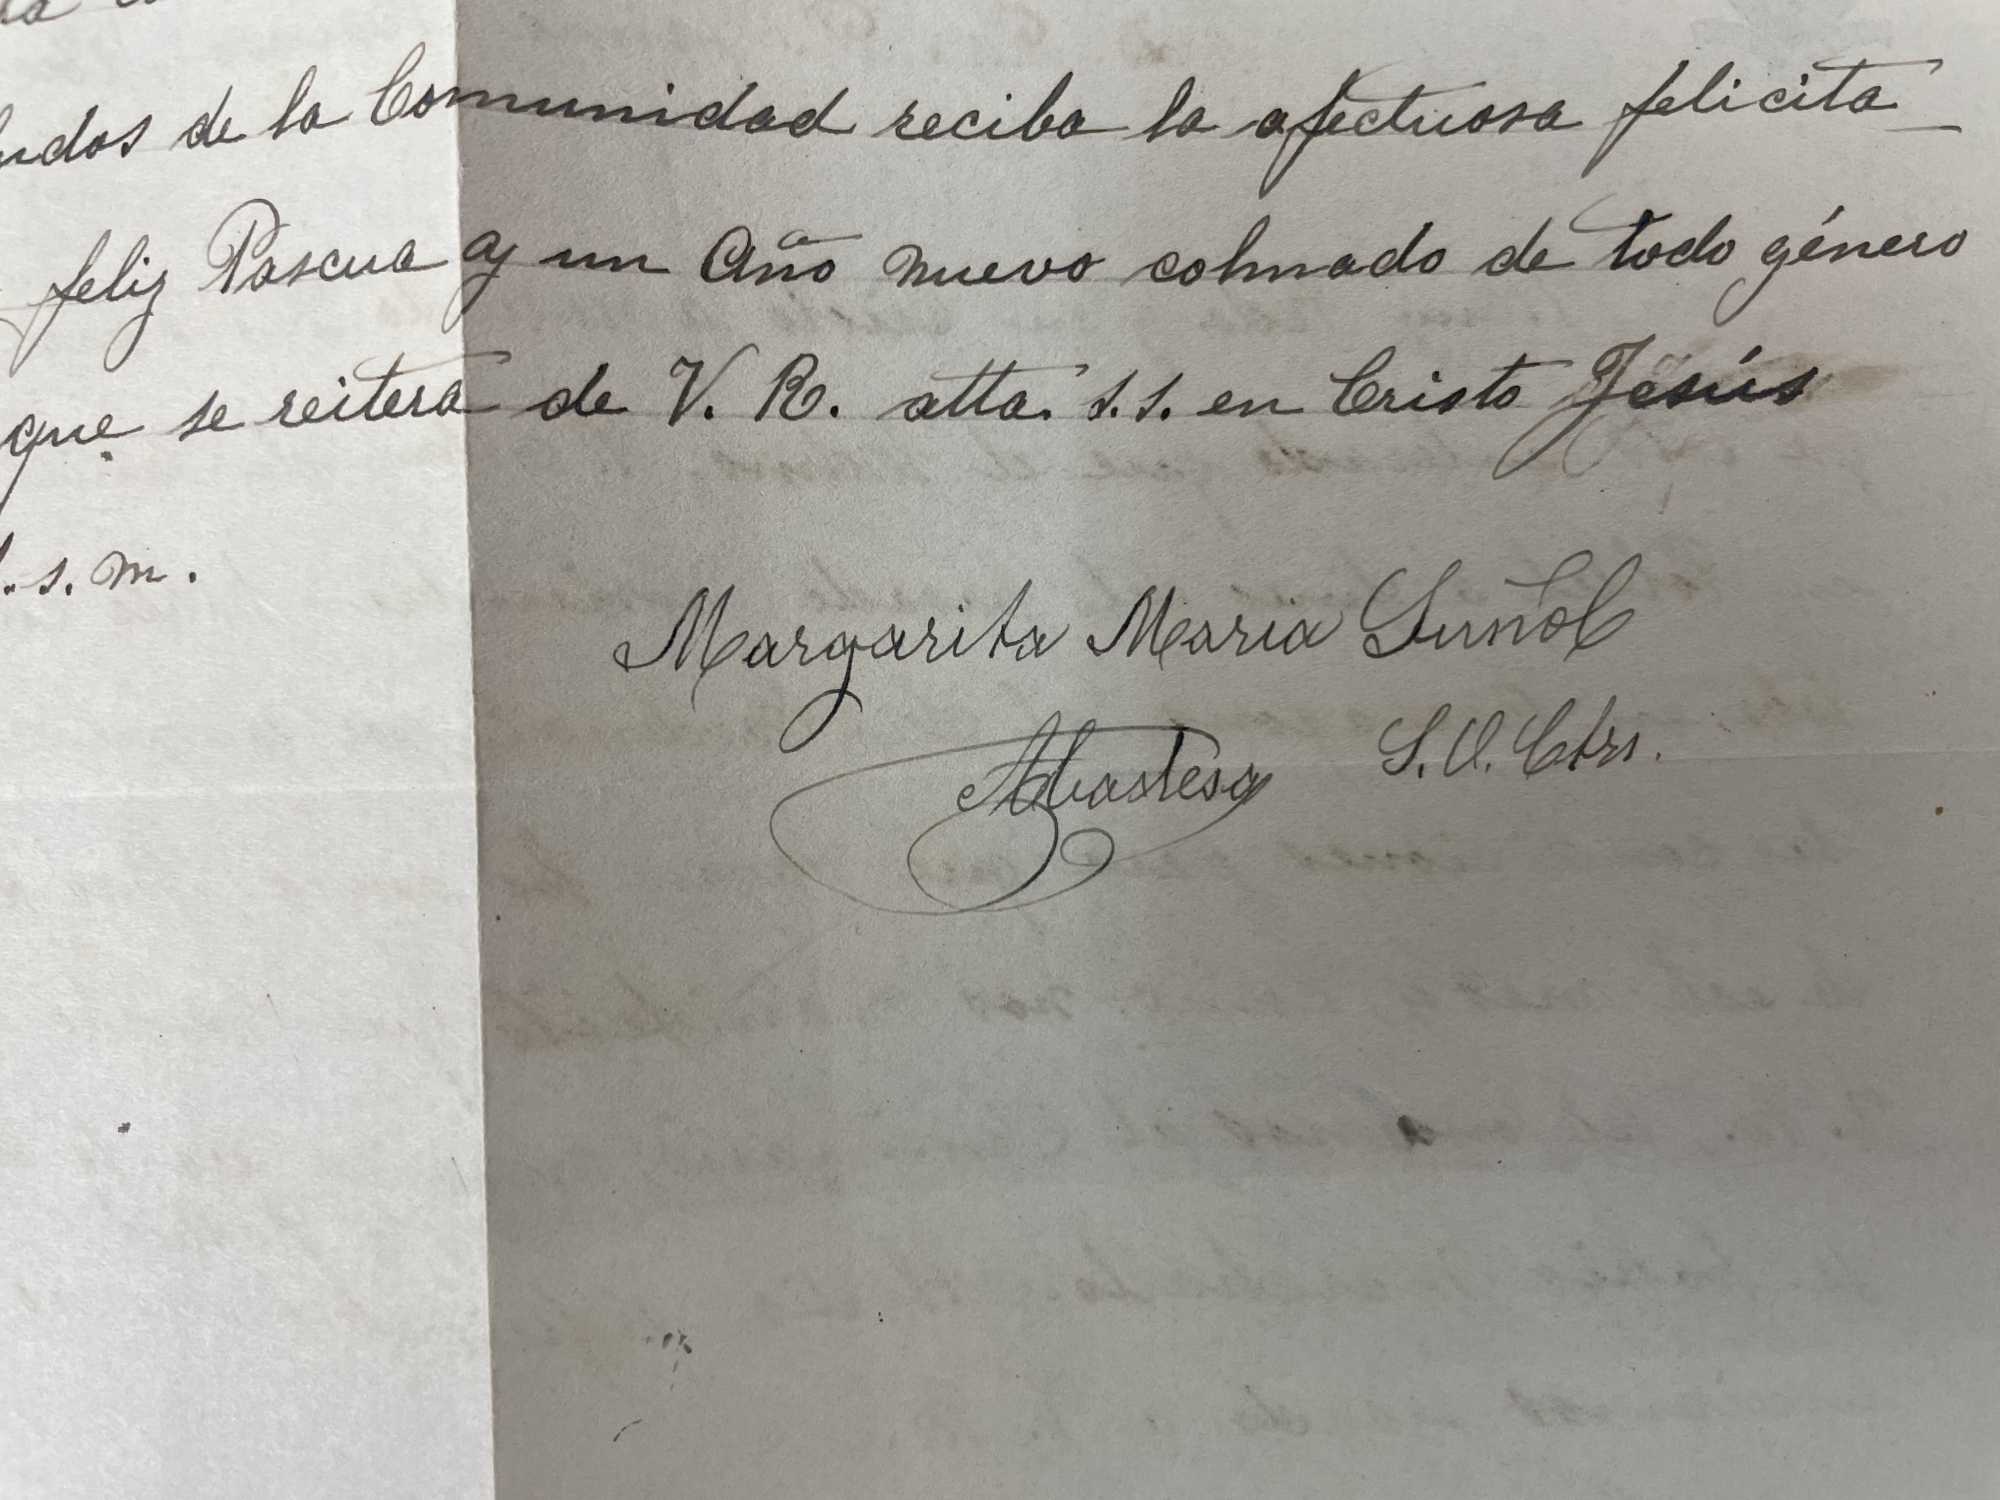 de la Comunidad reciba la afectuosa felicita_
feliz Pascua y un Año nuevo colmado de todo género
que se reitera de V. R. atta. s.s. en Cristo Jesús
.s.m.
Margarita Maria Suñol
Abadesa S.O. Ctrs.